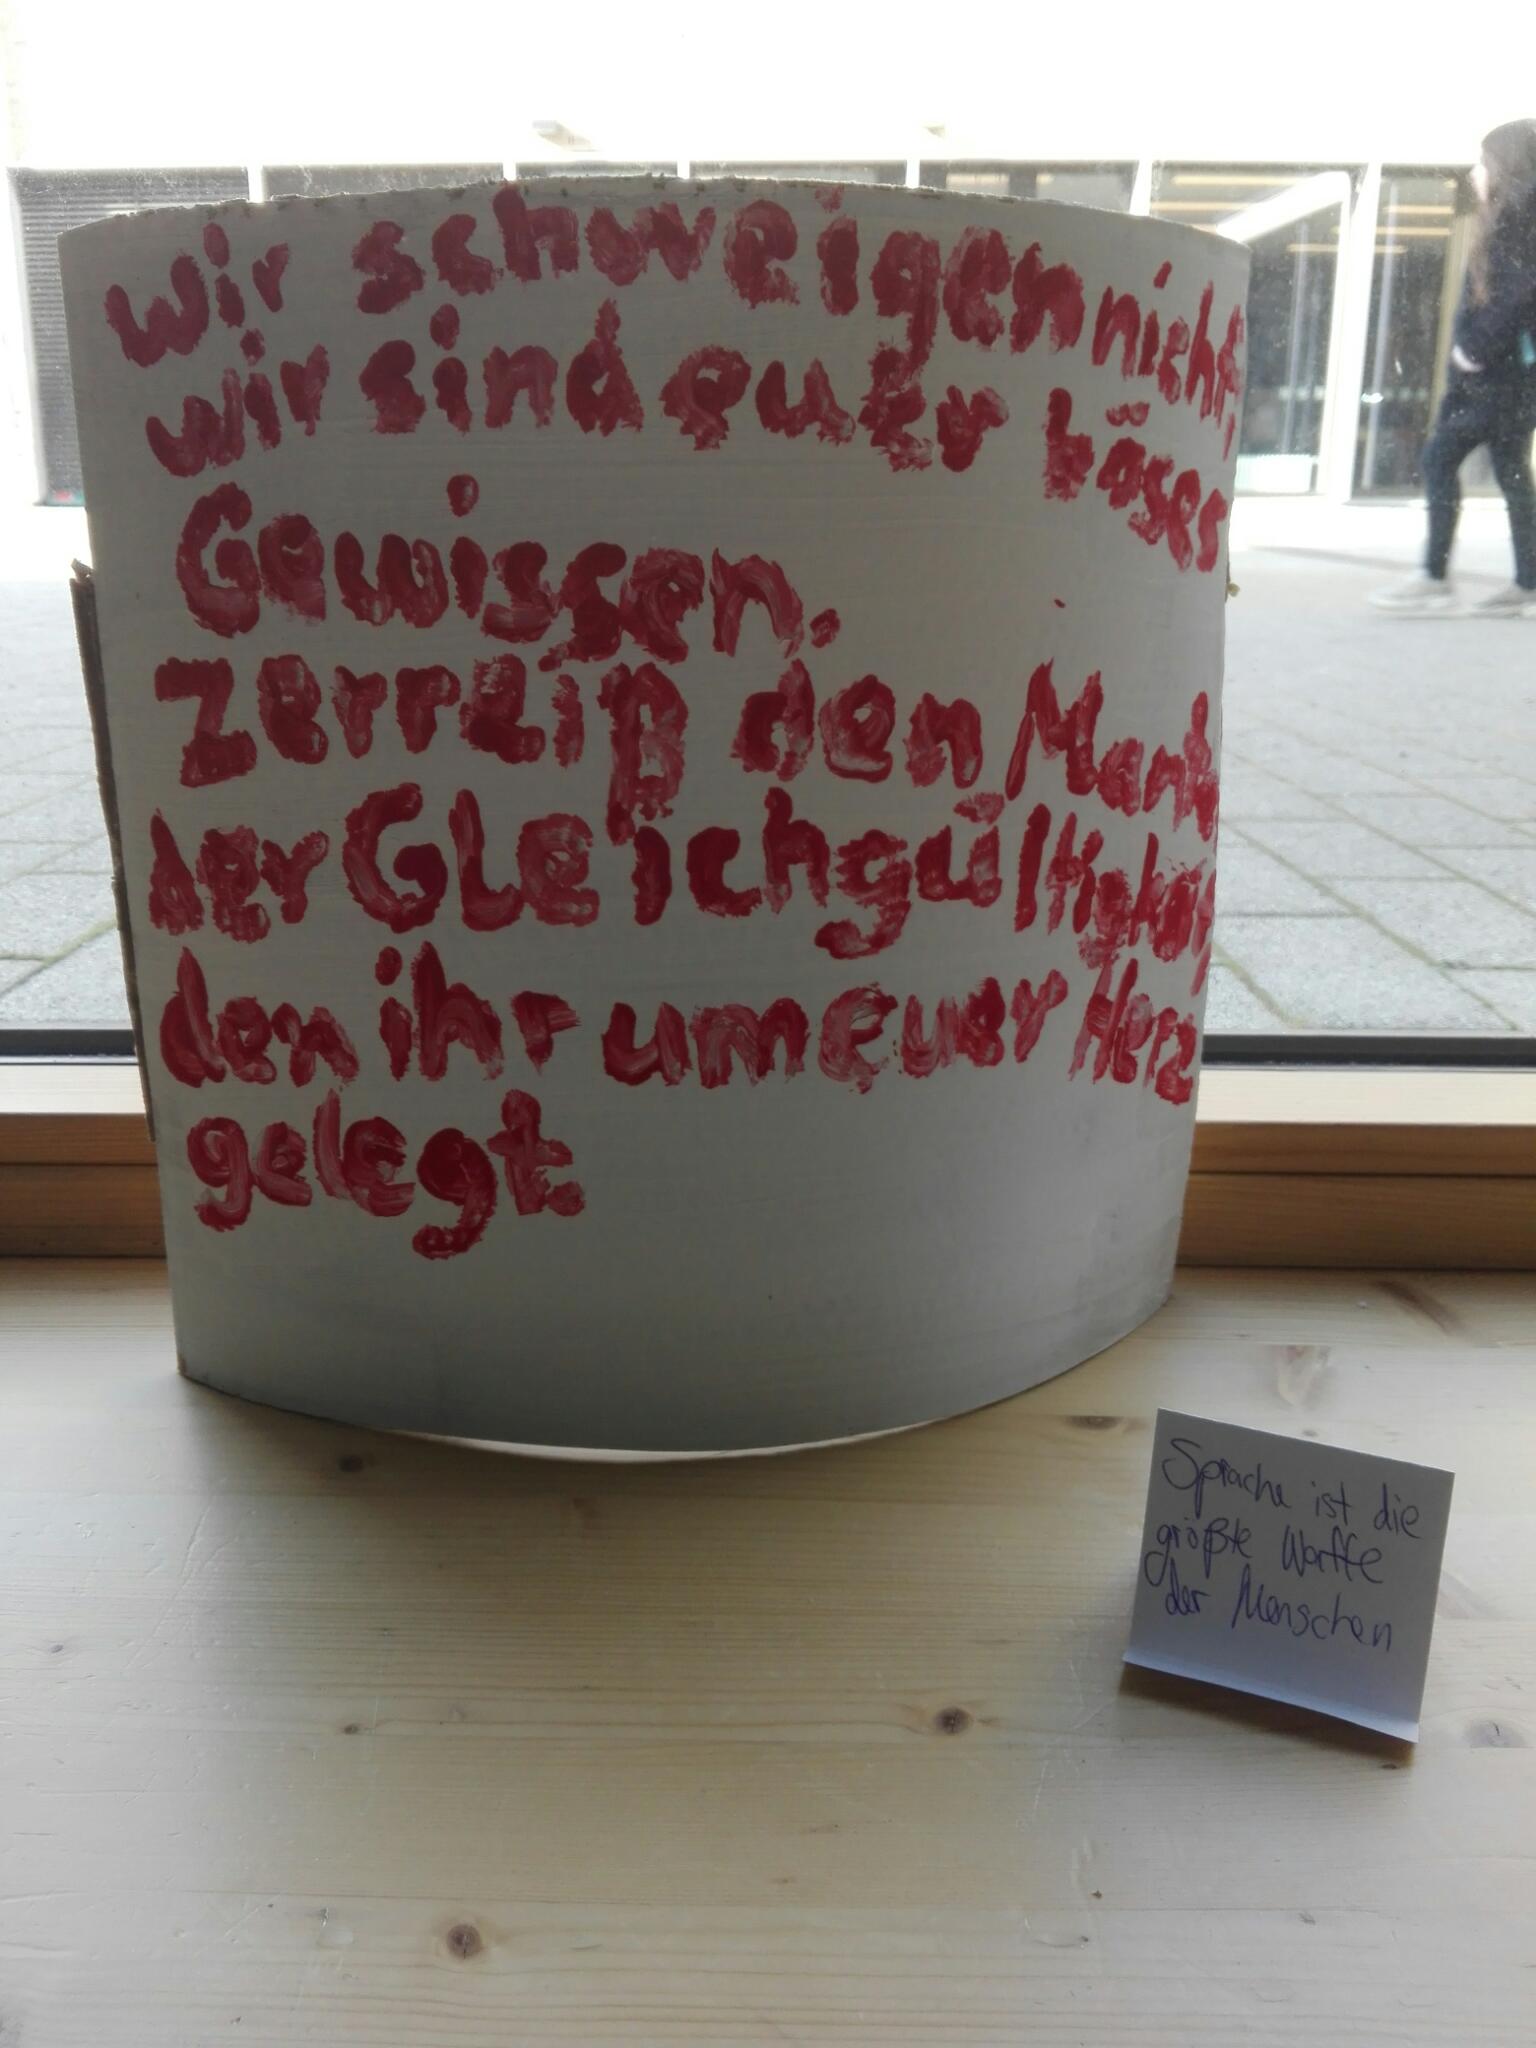 wir schweigen nicht,
wir sind euer böses
Gewissen.
Zerreiß den Mantel
der Gleichgültigkeit,
den ihr um euer Herz
gelegt.
Sprache ist die
größte Waffe
der Menschen